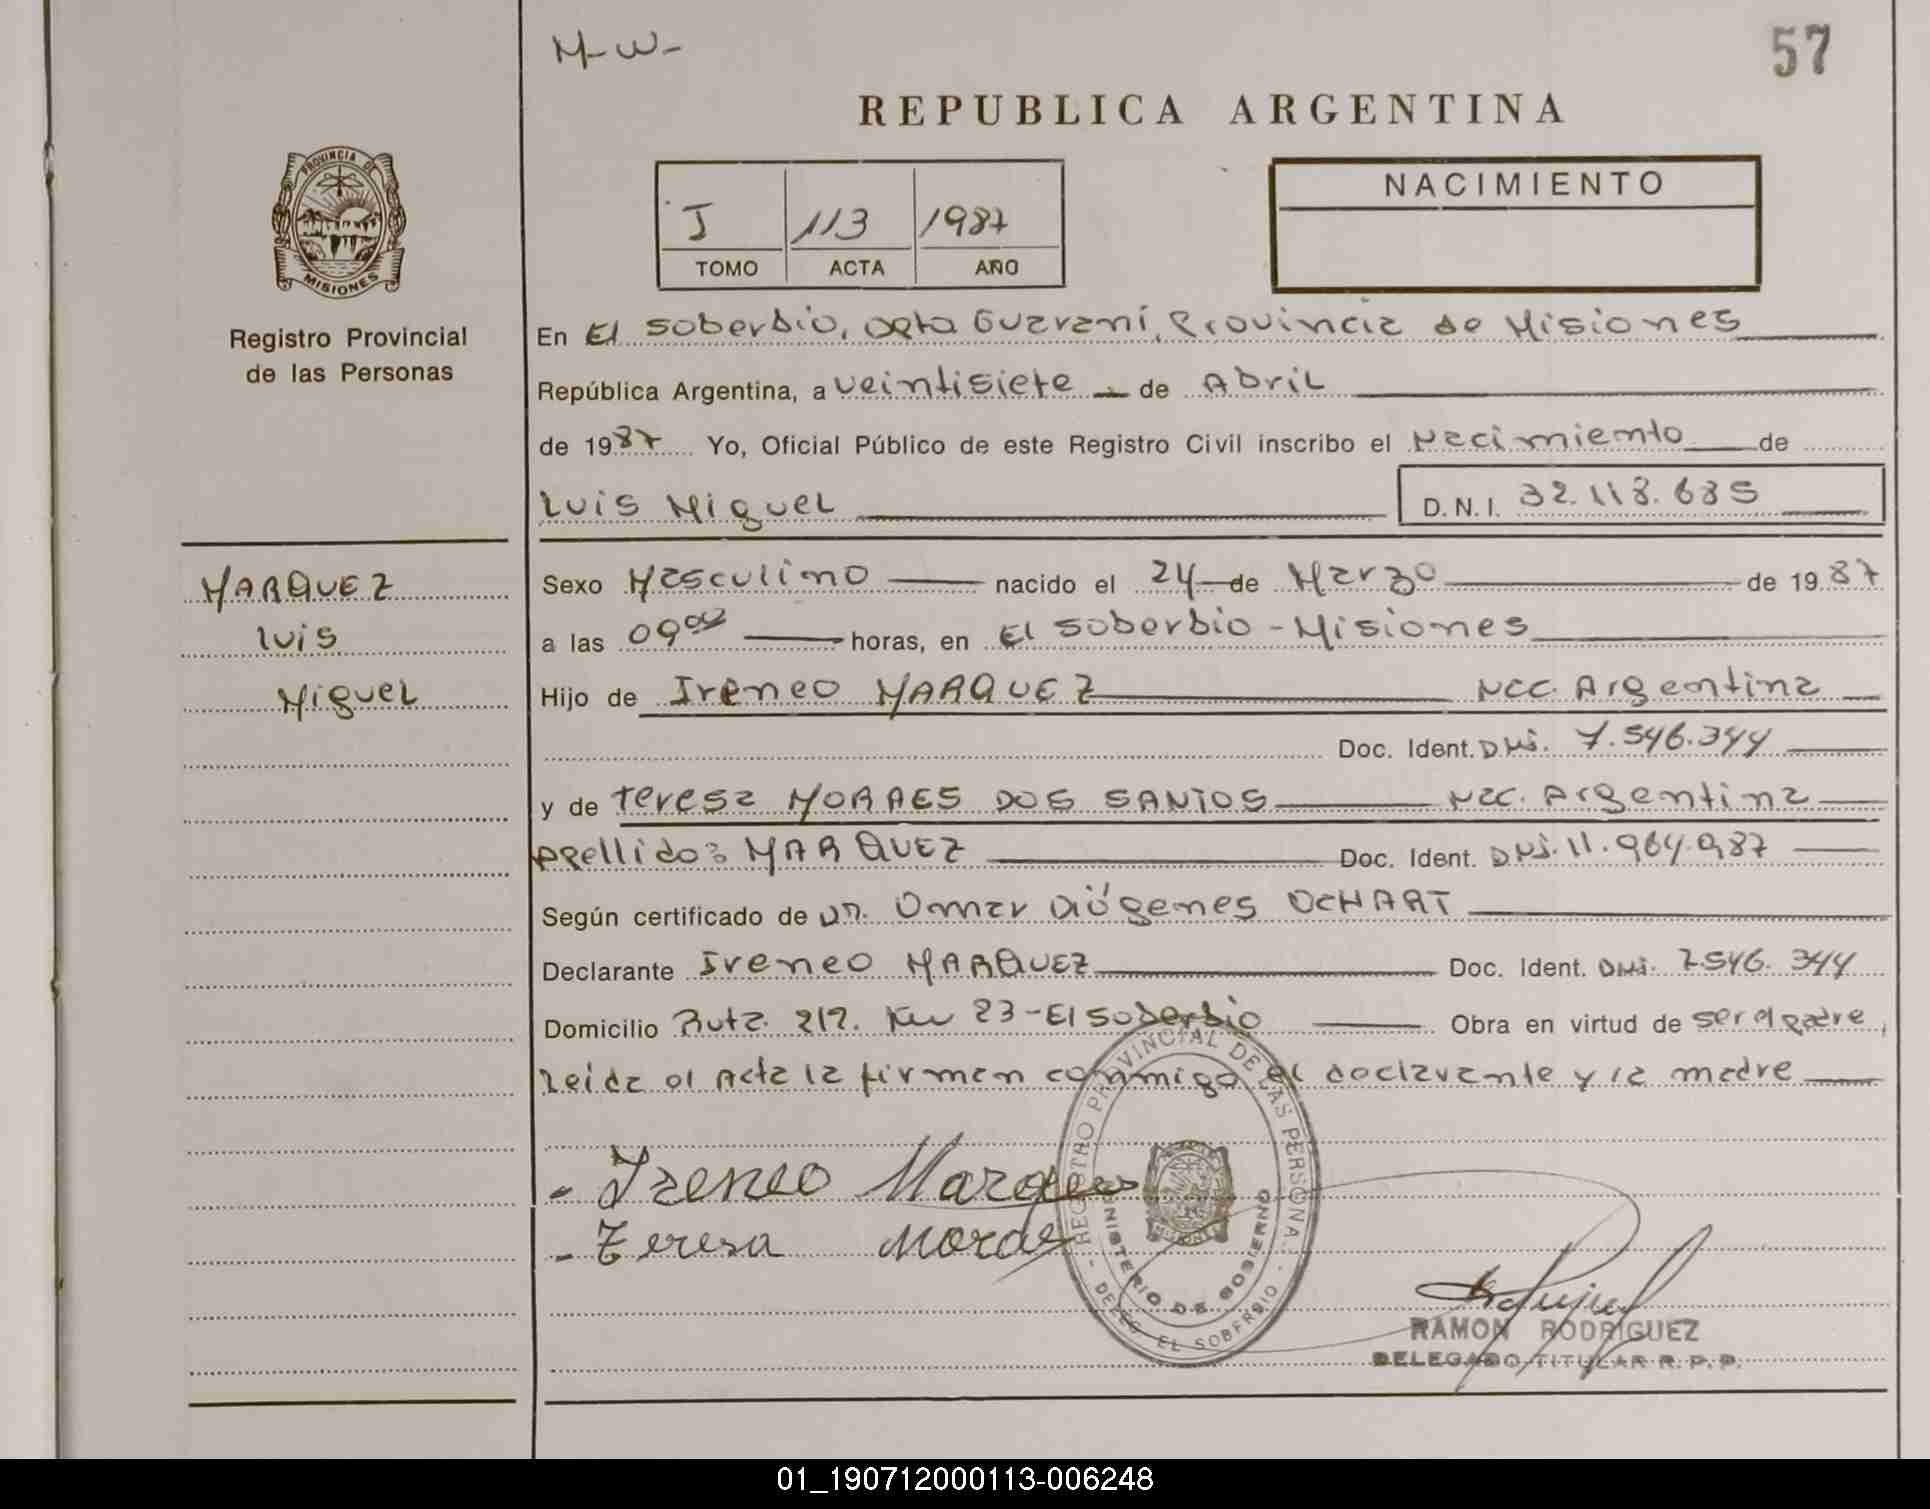 M-W-
57
REPUBLICA ARGENTINA
PROVINCIA DE
MISIONES
Registro Provincial
de las Personas
I 113 1987
TOMO ACTA AÑO
NACIMIENTO
En El Soberbio, Dpto Guaraní, Provincia de Misiones
República Argentina, a veintisiete de Abril
de 1987 Yo, Oficial Público de este Registro Civil inscribo el Nacimiento de
Luis Miguel D.N.I. 32.118.635
MARQUEZ
Luis
Miguel
Sexo Masculino nacido el 24 de Marzo de 1987
a las 09 00 horas, en El Soberbio - Misiones
Hijo de Ireneo MARQUEZ Nac. Argentina
Doc. Ident. DNI. 7.546.344
y de Teresa MORAES DOS SANTOS Nac. Argentina
Apellido: MARQUEZ Doc. Ident. DNI. 11.964.987
Según certificado de Dr. Omar Diógenes OCHART
Declarante Ireneo MARQUEZ Doc. Ident. DNI. 7.546.344
Domicilio Ruta 212. Km 23 - El Soberbio Obra en virtud de ser el padre,
Leida el Acta la firman conmigo el declarante y la madre
- Ireneo Marques
- Teresa Moraes
REGISTRO PROVINCIAL DE LAS PERSONAS
MINISTERIO DE GOBIERNO
- DELEG. EL SOBERBIO -
RAMON RODRIGUEZ
DELEGADO TITULAR R. P. P.
01_190712000113-006248